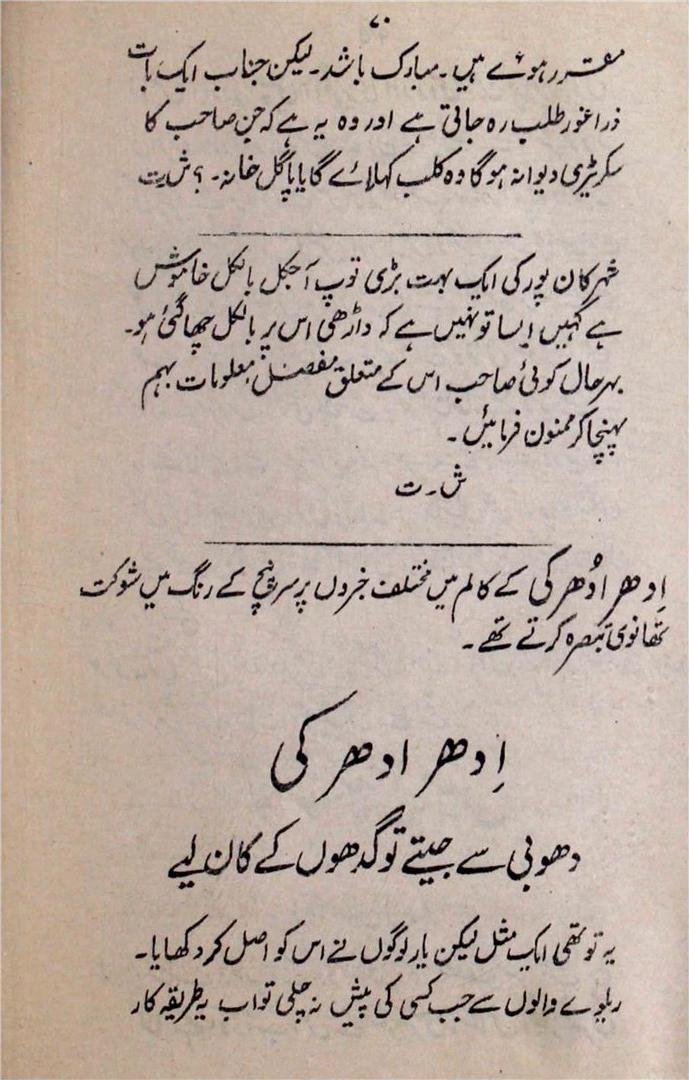 ۷۰
مقرر ہوئے ہیں۔ مبارک باشد۔ لیکن جناب ایک بات
ذرا غور طلب رہ جاتی ہے اور وہ یہ ہے کہ جن صاحب کا
سکریٹری دیوانہ ہوگا وہ کلب کہلائے گا یا پاگل خانہ۔ ؟ ش۔ت
شہر کان پور کی ایک بہت بڑی توپ آجکل بالکل خاموش
ہے کہیں ایسا تو نہیں ہے کہ داڑھی اس پر بالکل چھا گئی ہو۔
بہر حال کوئی صاحب اس کے متعلق مفصل معلومات بہم
پہنچا کر ممنون فرمائیں۔
ش۔ ت
اِدھر اُدھر کی کے کالم میں مختلف خبروں پر سرپنچ کے رنگ میں شوکت
تھانوی تبصرہ کرتے تھے۔
اِدھر ادھر کی
دھوبی سے جیتے تو گدھوں کے کان لیے
یہ تو تھی ایک مثل لیکن یار لوگوں نے اس کو اصل کر دکھایا۔
ریلوے والوں سے جب کسی کی پیش نہ چلی تو اب یہ طریقہ کار